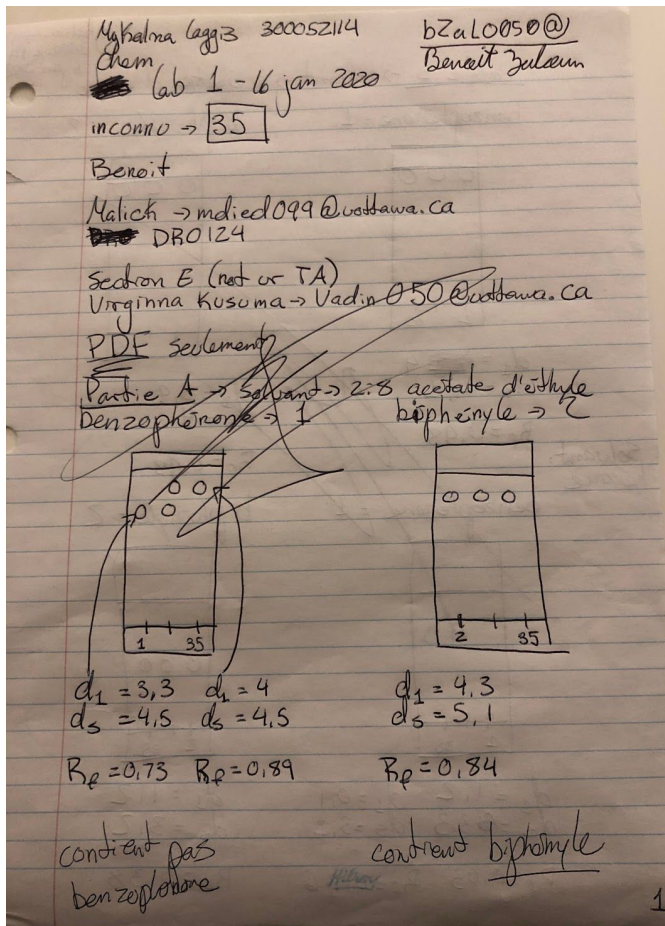 300052114
bZal0050@
Chem
Benoit
lab 1 - 16 jan 2020
inconnu → 35
Benoit
Malick → mdied099@uottawa.ca
DRO124
Section E (not ur TA)
Kusuma → Vadin050@uottawa.ca
PDF seulement
Partie A → Solvant → 2:8 acétate d'éthyle
benzophénone → 1 biphényle → 2
1 35
2 35
d1 = 3,3 d1 = 4 d1 = 4.3
ds = 4,5 ds = 4,5 ds = 5,1
Rf = 0,73 Rf = 0,89 Rf = 0,84
contient pas contient biphényle
Hilroy
1